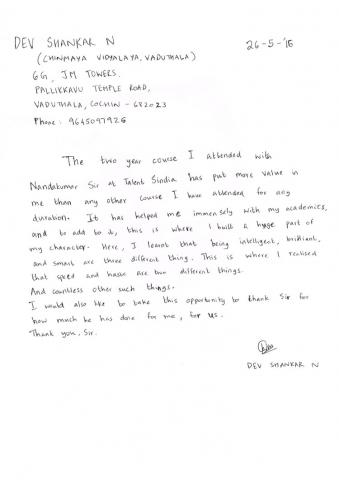 DEV SHANKAR N
26-5-'16
(CHINMAYA VIDYALAYA, VADUTHALA)
6G, JM TOWERS.
PALLIKKAVU TEMPLE ROAD,
VADUTHALA, COCHIN - 682023
Phone: 9645097926
The two year course I attended with
Nandakumar Sir at Talent Sindia has put more value in
me than any other course I have attended for any
duration. It has helped me immensely with my academics,
and to add to it, this is where I built a huge part of
my character. Here, I learnt that being intelligent, brilliant,
and smart are three different thing. This is where I realised
that speed and haste are two different things.
And countless other such things.
I would also like to take this opportunity to thank Sir for
how much he has done for me, for us.
Thank you, Sir.
DEV SHANKAR N